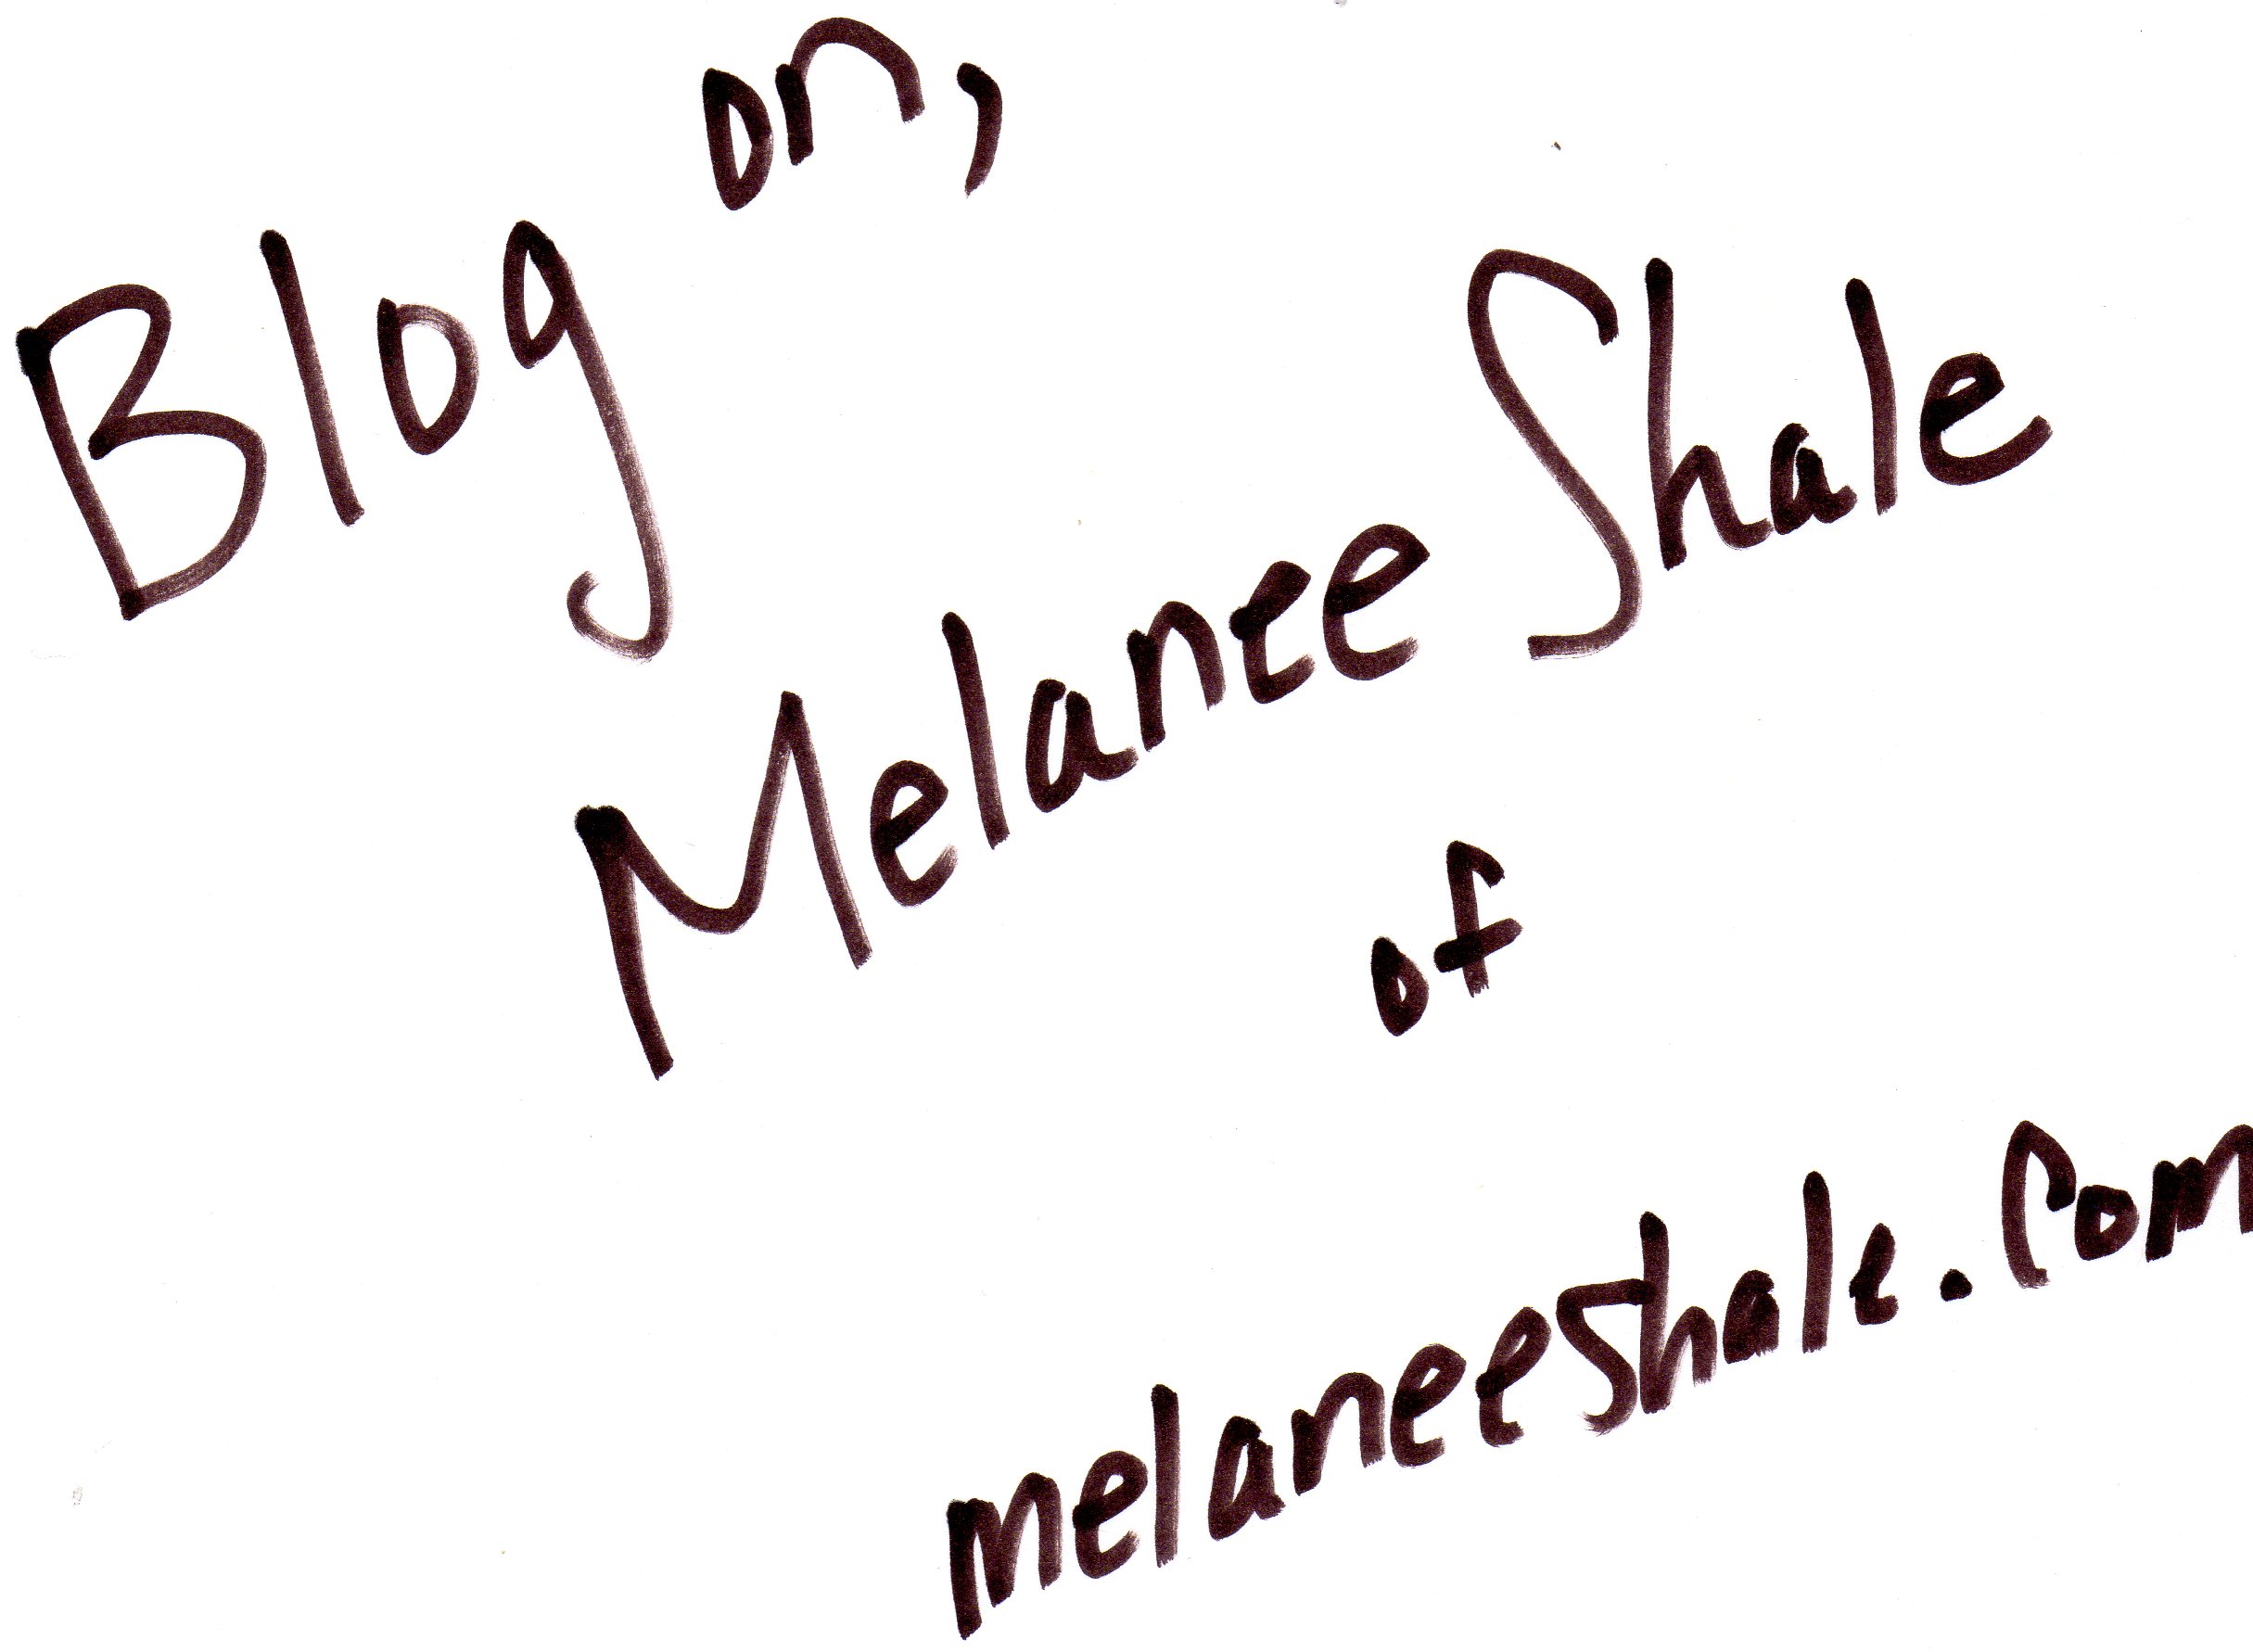 Blog on,
Melanee Shale
of
melaneeshale.com